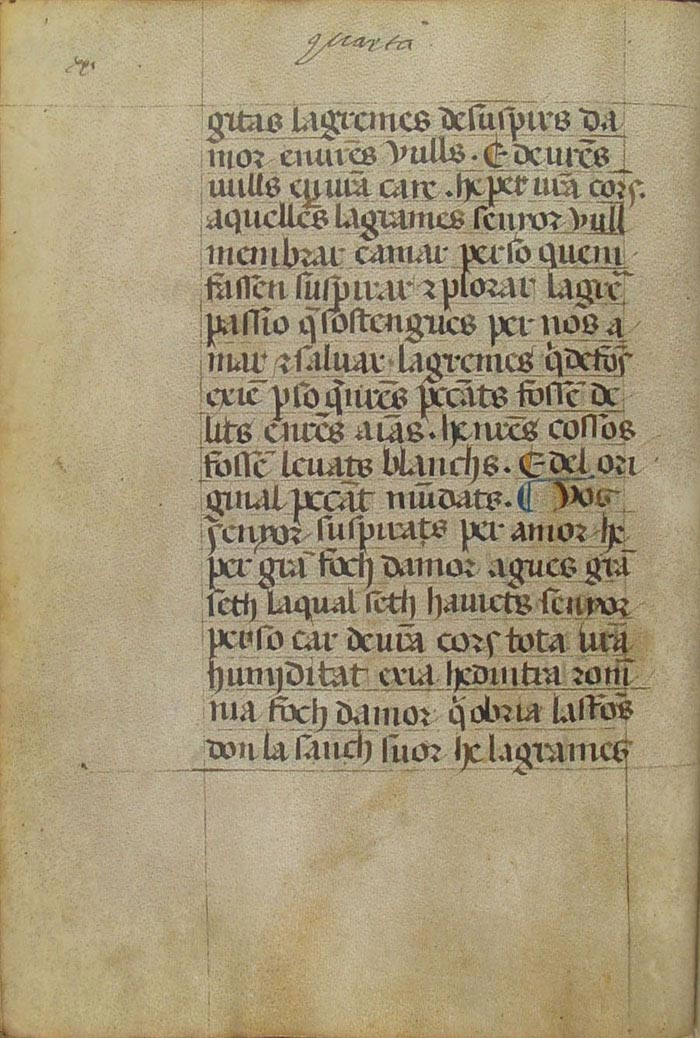 quarta
gitas lagremes de suspirs da
mor en vr̄es vulls. E de vr̄es
vulls en vrā care. he per vrā cors.
aquelles lagrames senyor vull
membrar e amar per so quem
fassen suspirar ⁊ plorar la grē
passio q̄ sostengues per nos a
mar ⁊ saluar lagremes q̄ de fos
exiē p so q̄ vr̄es pecāts fossē de
lits en r̄es aīas. he nr̄es cossos
fossē leuats blanchs. E del ori
ginal pecāt mūdats. ¶ Vos
senyor suspirats per amor he
per grā foch damor agues grā
seth la qual seth hauiets senyor
per so car de vrā cors tota vrā
humiditat exia he dintra romā
nia foch damor q̄ obria las fōs
don la sanch suor he lagrames